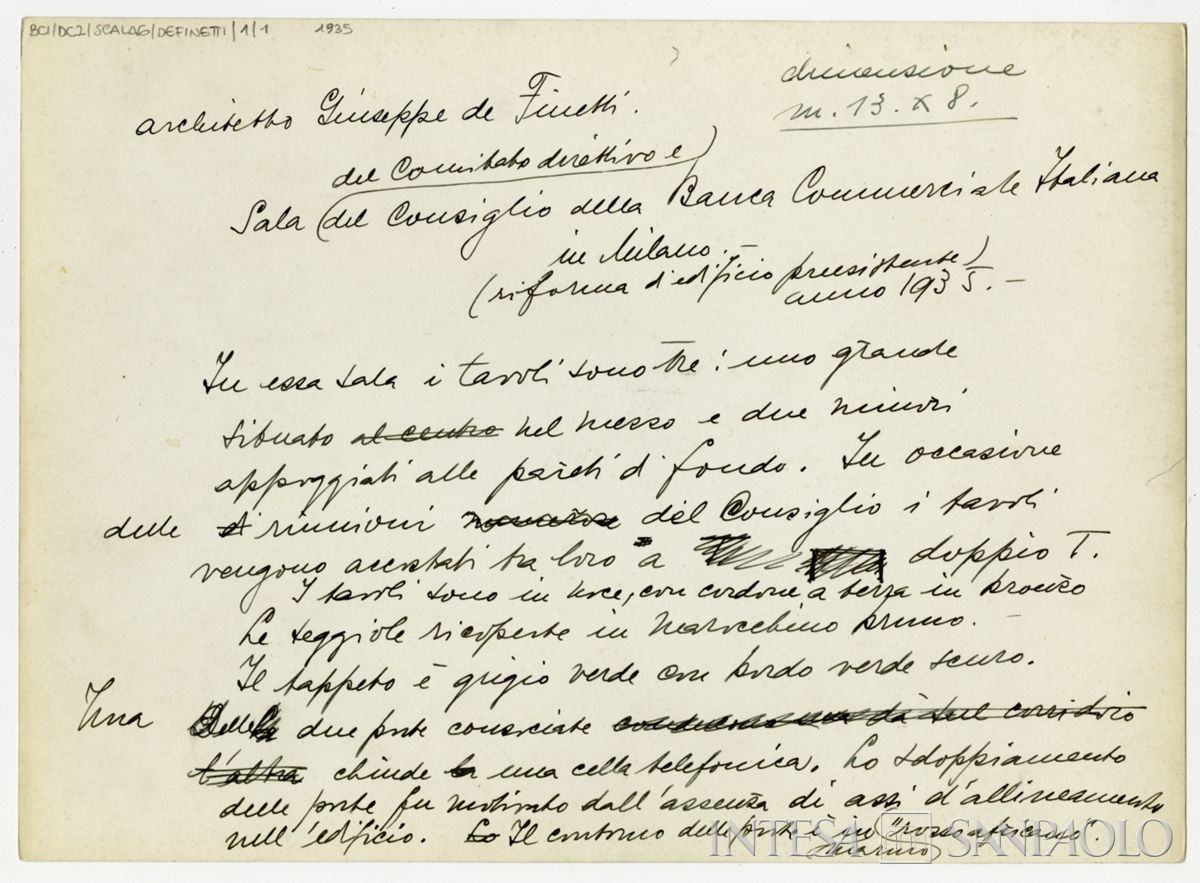 BCI/DC2/SCALA6/DEFINETTI/1/1 1935
dimensione
m. 13. x 8.
architetto Giuseppe de Finetti.
del Comitato direttivo e)
Sala (del Consiglio della Banca Commerciale Italiana
in Milano. –
(riforma d'edificio preesistente)
anno 1935. –
In essa sala i tavoli sono tre: uno grande
situato al centro nel mezzo e due minori
appoggiati alle pareti di fondo. In occasione
delle di riunioni del Consiglio i tavoli
vengono accostati tra loro a doppio T.
I tavoli sono in noce, con cordone a terra in bronzo
Le seggiole ricoperte in marocchino bruno. –
Il tappeto è grigio verde con bordo verde scuro.
Una Delle due porte consociate dà sul corridoio
l'altra chiude la una cella telefonica. Lo sdoppiamento
delle porte fu motivato dall'assenza di assi d'allineamento
nell'edificio. Lo Il contorno delle porte è in "rosso africano".
(marmo)
INTESA SANPAOLO